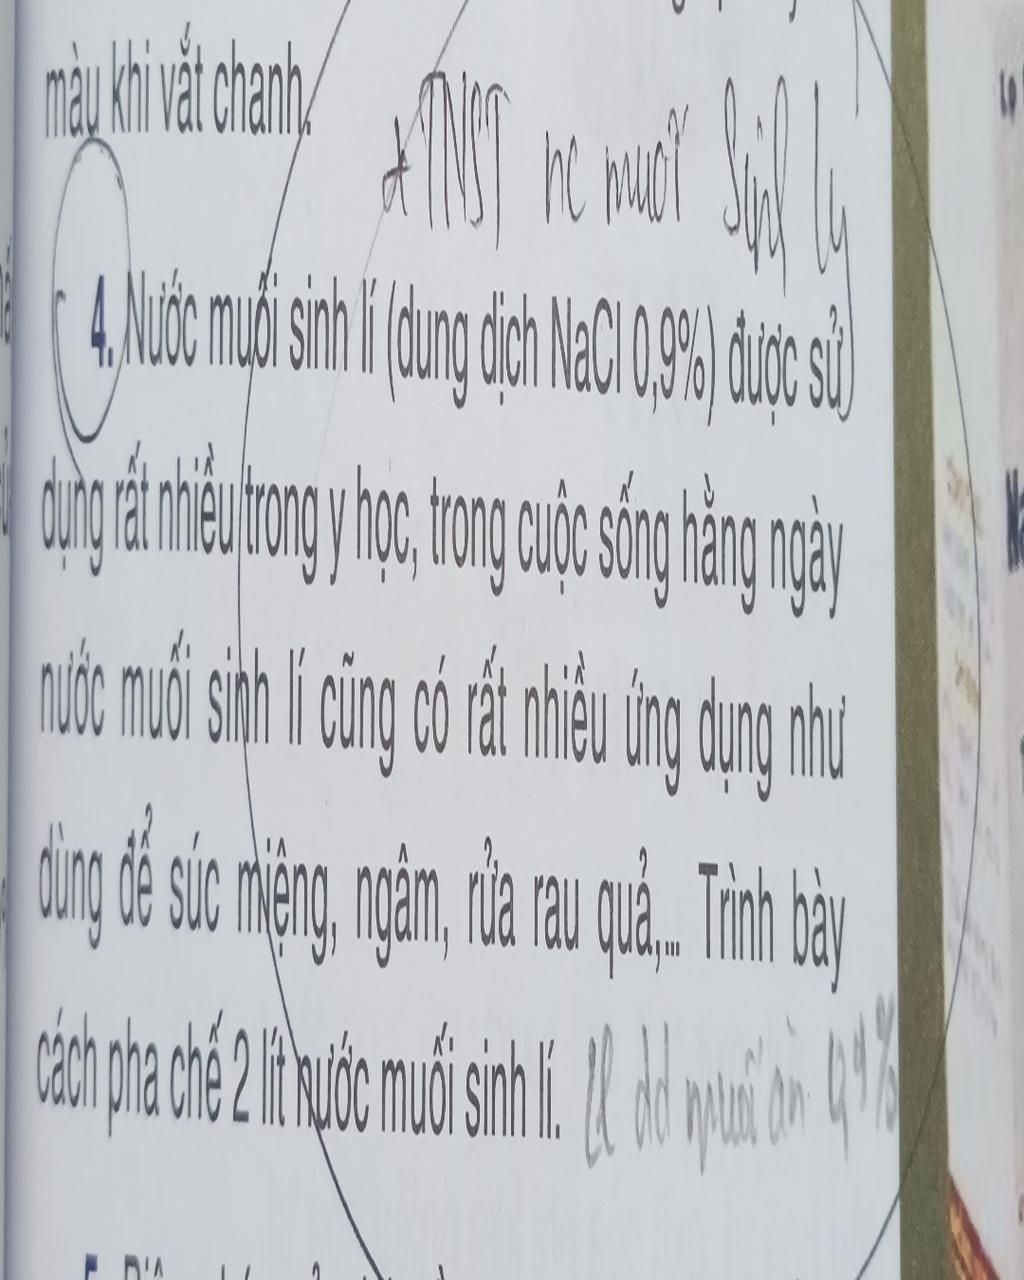 màu khi vắt chanh.
* TNST nc muối Sinh lý
4. Nước muối sinh lí (dung dịch NaCl 0,9%) được sử
dụng rất nhiều trong y học, trong cuộc sống hằng ngày
nước muối sinh lí cũng có rất nhiều ứng dụng như
dùng để súc miệng, ngâm, rửa rau quả,... Trình bày
cách pha chế 2 lít nước muối sinh lí.
dd muối ăn 0,9%